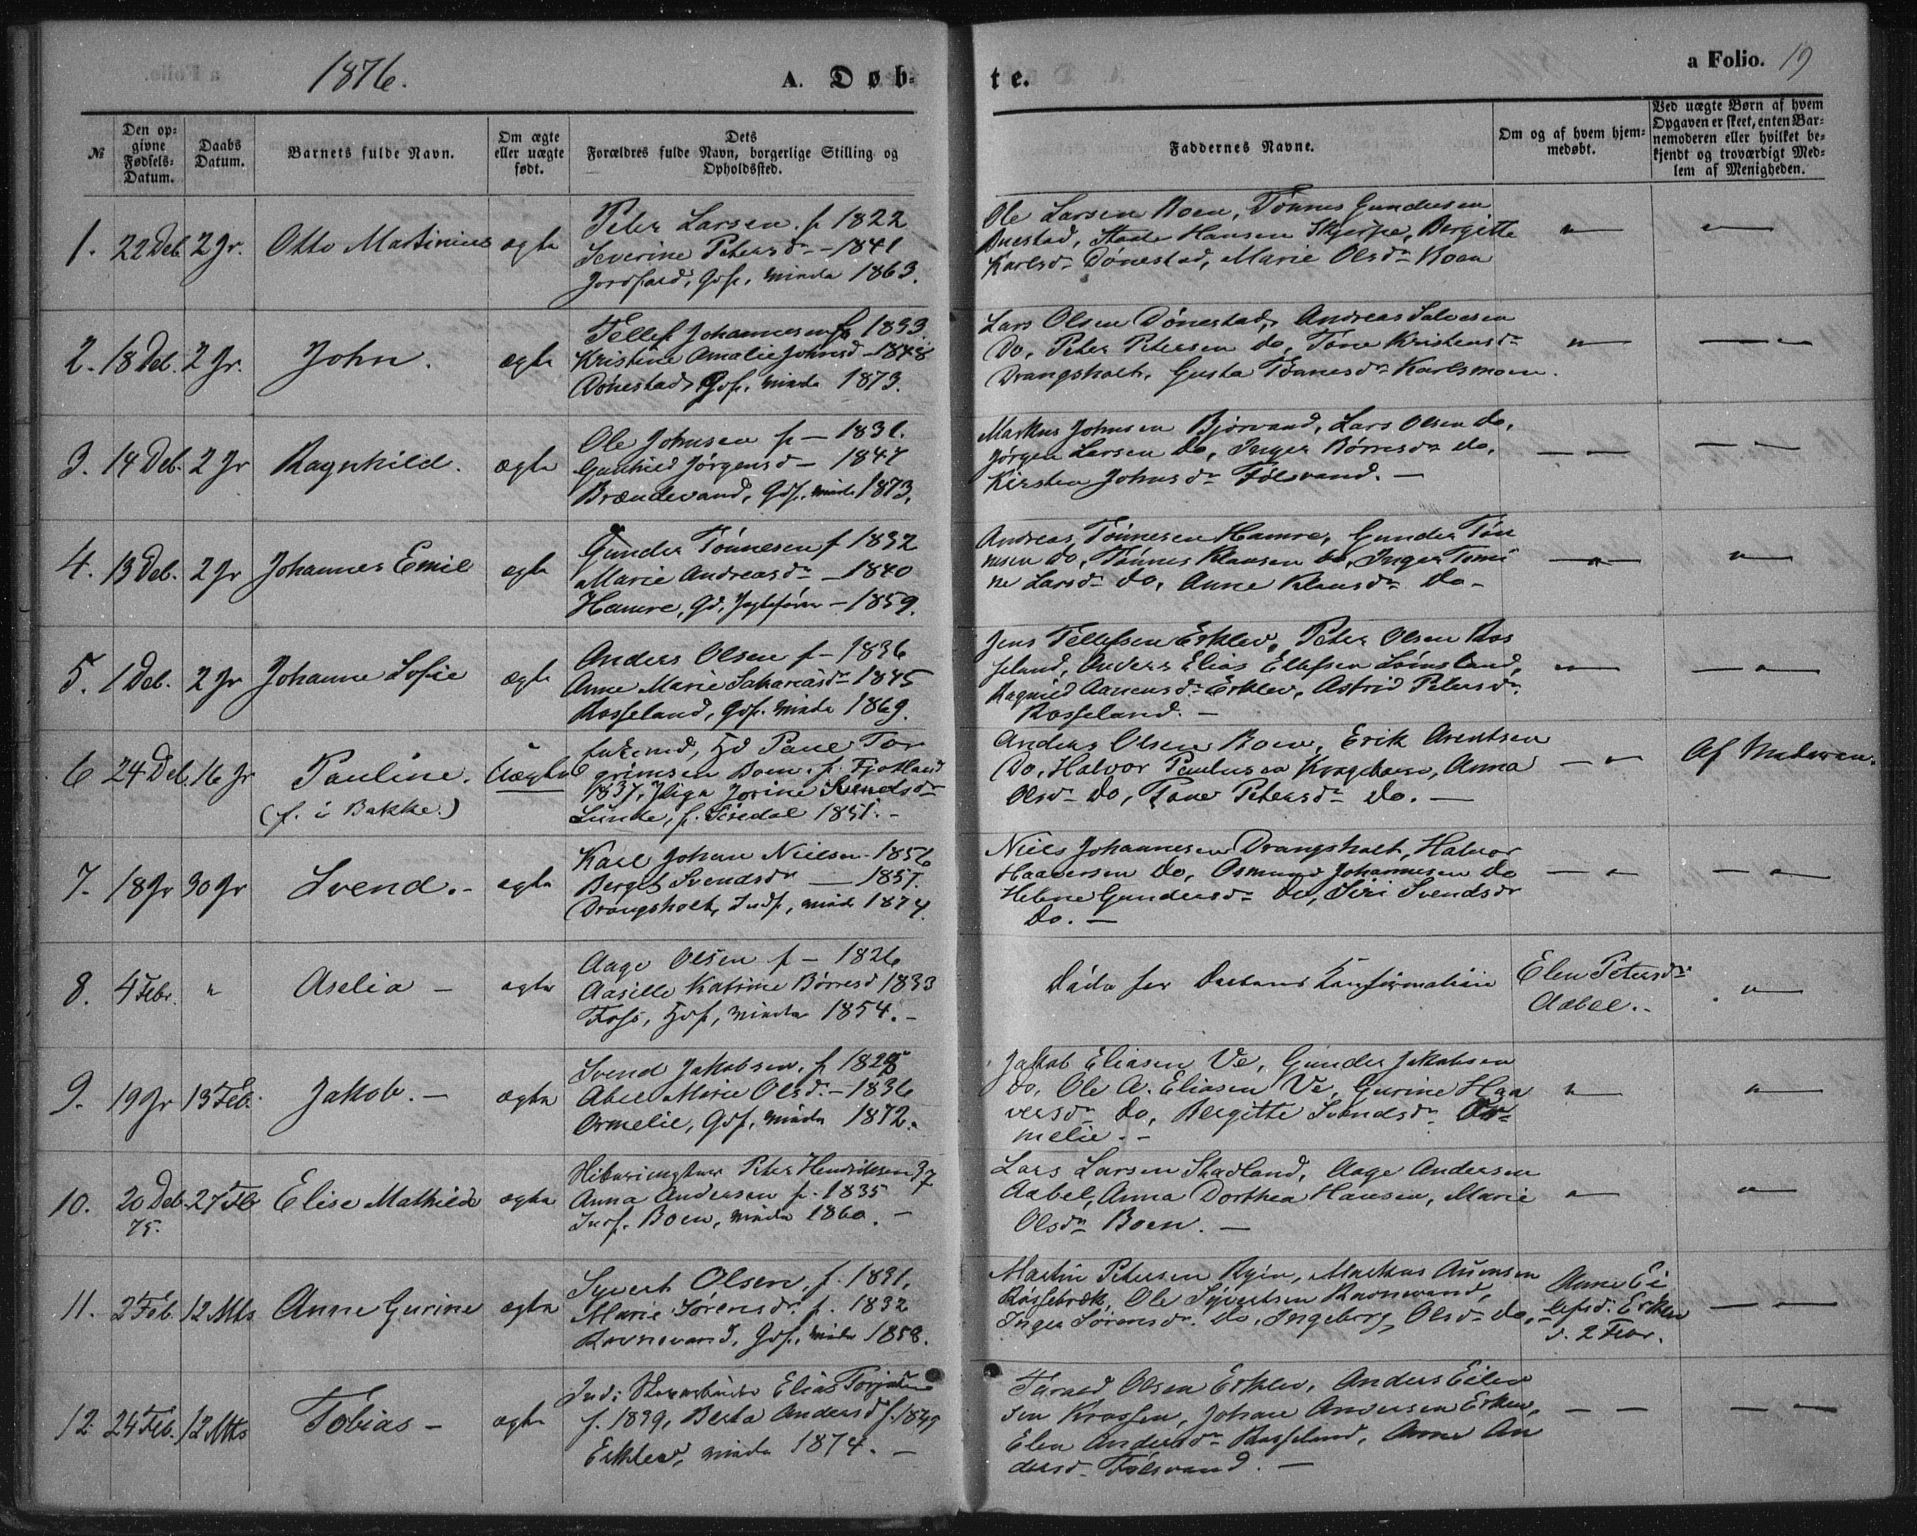 1876.
A. Døb-
te.
a Folio. 19
№
Den op-
givne
Fødsels-
Datum.
Daabs
Datum.
Barnets fulde Navn.
Om ægte
eller uægte
født.
Dets
Forældres fulde Navn, borgerlige Stilling og
Opholdssted.
Faddernes Navne.
Om og af hvem hjem-
medøbt.
Ved uægte Børn af hvem
Opgaven er skeet, enten Bar-
nemoderen eller hvilket be-
kjendt og troværdigt Med-
lem af Menigheden.
1. 22 Deb. 2 Jr. Otto Martinius ægte
Peter Larsen f 1822
Severine Petersdr – 1841
Gdf, minda 1863.
Ole Larsen Boen, Tønnes Gundersen
Hansen Skjerpe, Bergitte
Karlsdr Dønestad, Marie Olsdr Boen
2. 18 Deb. 2 Jr. John. ægte
Tellef Johannesen f 1833
Kristine Amalie Johnsd – 1848
Dønestad, Gdf, minda 1873.
Lars Olsen Dønestad, Andreas Salvesen
Do, Peter Petersen do, Tone Kristensdr
Drangsholt, Gusta Karlsmoen.
3. 14 Deb. 2 Jr Ragnhild. ægte
Ole Johnsen f – 1831.
Gunhild Jørgensd – 1847
Brændevand, Gdf, minda 1873.
Markus Johnsen Bjørvand, Lars Olsen do,
Jørgen Larsen do, Inger Børresdr do,
Kirsten Johnsdr Følsvand. –
4. 13 Deb. 2 Jr Johannes Emil ægte
Gunder Tønnesen f 1832
Marie Andreasdr – 1840
Hamre, Gd, – 1859.
Andreas Tønnesen Hamre, Gunder Tøn
nesen do, Tønnes Klausen do, Inger Tomi
ne Larsdr do, Anne Klausdr do –
5. 1 Deb. 2 Jr Johanne Sofie ægte
Anders Olsen f – 1836
Anne Marie Sakariasdr 1845
Rosseland, Gdf. minda 1869.
Jens Tellefsen Erklev, Peter Olsen Ros
seland, Anders Elias Ellefsen Lømsland,
Ragnild Aanensdr Erklev, Astrid Petersdr
Rosseland. –
6 24 Deb. 16 Jr Pauline. Uægte
(f. i Bakke.)
Pane Tor
grimsen Boen, f. Fjotland
1837, Pige Jorine
Lunde, f. Siredal 1851. –
Anders Olsen Boen, Erik Arentsen
Do, Halvor Paulusen Anna
Olsdr do, Tone Petersdr do. –
Af Moderen.
7. 18 Jr 30 Jr Svend. – ægte
Karl Johan Nielsen – 1856
Berget Svendsdr – 1857.
Drangsholt, Indf, minda 1874.
Niels Johannesen Drangsholt, Halvor
Haaversen do, Osmund Johannesen do
Helene Gundersdr do, Siri Svendsdr
Do. –
8. 4 Febr. " Aselia – ægte
Aage Olsen f – 1826
Aasille Katrine Børresd 1833
Foss, minda 1854. –
Døde før Daabens Konfirmation
Elen Petersdr
Aabel. –
9. 19 Jr 13 Feb. Jakob. – ægte
Svend Jakobsen, f
Abel Marie Olsdr – 1836
Ormelie, Gdf, minda 1872.
Jakob Eliasen Ve, Gunder Jakobsen
do, Ole A. Eliasen Ve, Gurine Haa
versdr do, Bergitte Svendsdr Or-
melie. –
10. 20 Deb. 27 Feb Elise Mathilde ægte
75.
Peter Henriksen 37
Anna Andersen f. 1835
Indf. Boen, minda 1860. –
Lars Larsen Stadland, Aage Andersen
Aabel, Anna Dorthea Hansen, Marie
Olsdr Boen. –
11. 2 Feb. 12 Mts Anne Gurine ægte
Syvert Olsen, f. 1831.
Marie Sørensdr f. 1832
Ravnevand, Gdf, minda 1858.
Martin Petersen Ryen, Markus
Ole Syvertsen Ravnevand,
Inger Sørensdr do, Ingeborg Olsdr do, –
Anne Ei
lefsd. Erklev
d. 2 Febr.
12. 24 Feb. 12 Mts Tobias – ægte
Elias
f. 1839, Berta Andersd f. 1849
Erklev, minda 1874. –
Olsen Erklev, Anders Eilev
sen Krossen, Johan Andersen Erklev,
Elen Andersdr Rosseland, Anne An
dersdr Følsvand. –